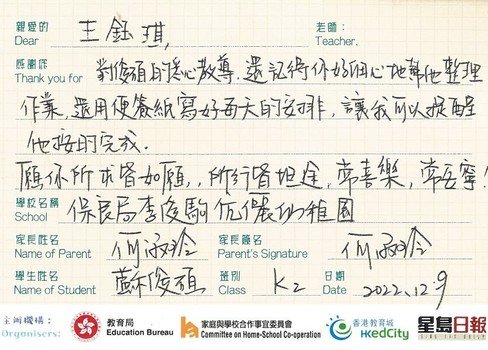 親愛的 王鈺琪, 老師:
Dear Teacher,
感謝你
Thank you for 對俊頤的悉心教導,還記得你好細心地幫他整理
作業,還用便簽紙寫好每天的安排,讓我可以提醒
他按時完成.
願你所求皆如願,,所行皆坦途,常喜樂,常安寧!
學校名稱
School 保良局李俊駒伉儷幼稚園
家長姓名 何淑玲 家長簽名 何淑玲
Name of Parent Parent's Signature
學生姓名 蘇俊頤 班別 K2 日期 2022.12.9
Name of Student Class Date
主辦機構:
Organisers:
教育局
Education Bureau
家庭與學校合作事宜委員會
Committee on Home-School Co-operation
香港教育城
HKedCity
星島日報